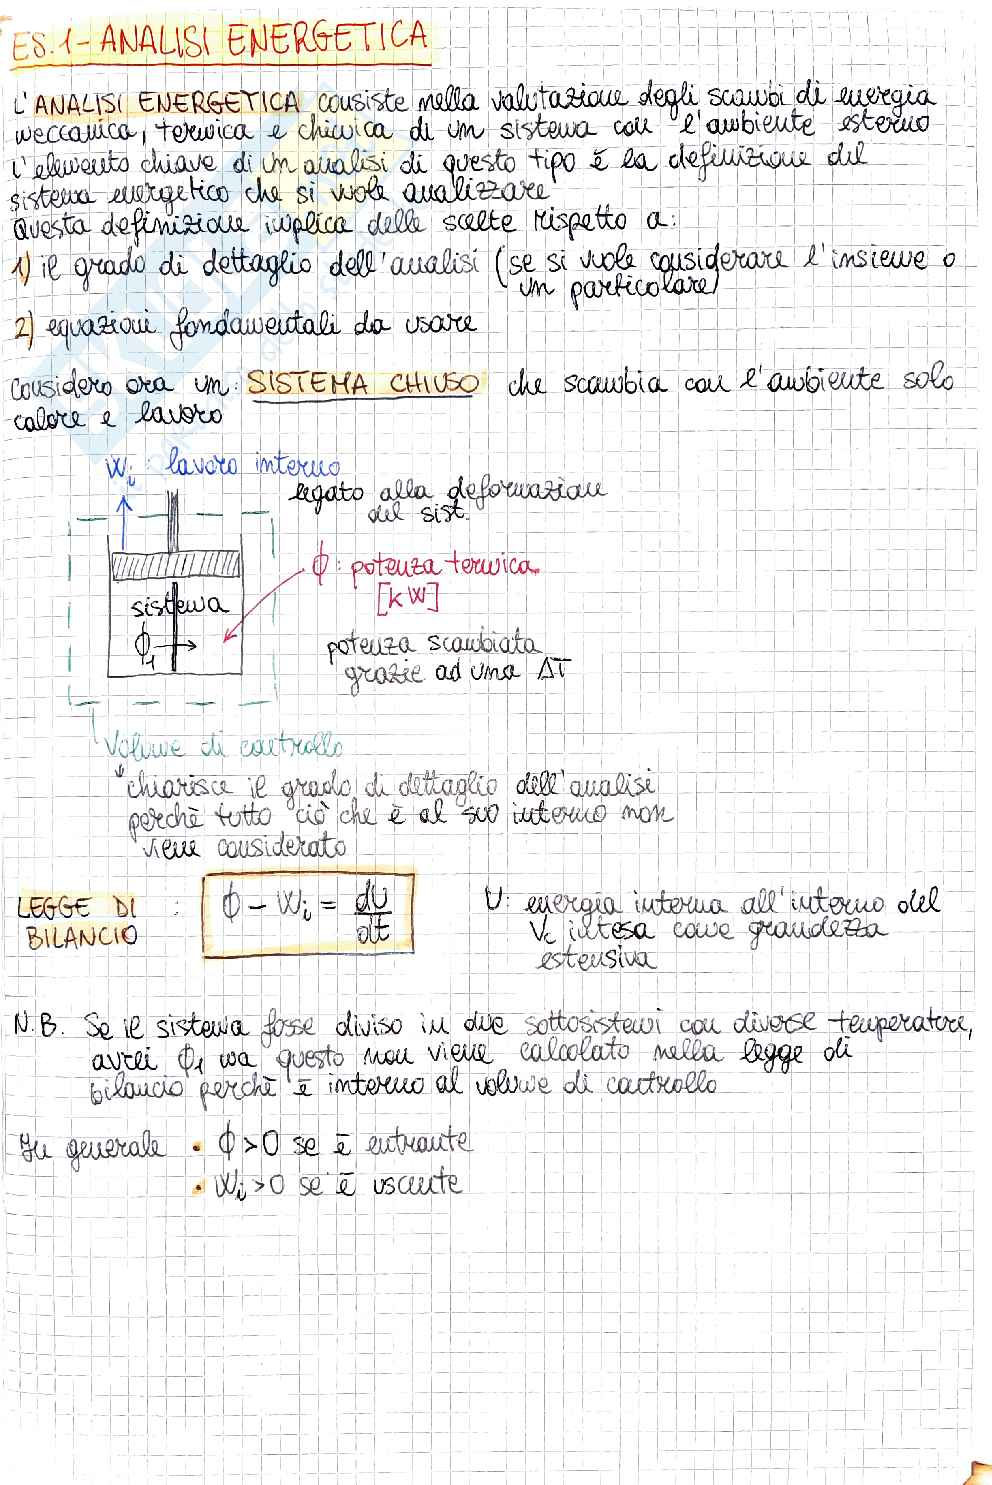 ES.1 - ANALISI ENERGETICA
L'ANALISI ENERGETICA consiste nella valutazione degli scambi di energia
meccanica, termica e chimica di un sistema con l'ambiente esterno
L'elemento chiave di un analisi di questo tipo è la definizione del
sistema energetico che si vuole analizzare
Questa definizione implica delle scelte rispetto a:
1) il grado di dettaglio dell'analisi (se si vuole considerare l'insieme o
un particolare)
2) equazioni fondamentali da usare
Considero ora un SISTEMA CHIUSO che scambia con l'ambiente solo
calore e lavoro
Wi: lavoro interno
legato alla deformazione
del sist.
ϕ: potenza termica
[kW]
sistema
ϕ1
potenza scambiata
grazie ad una ΔT
Volume di controllo
chiarisce il grado di dettaglio dell'analisi
perchè tutto ciò che è al suo interno non
viene considerato
LEGGE DI BILANCIO : ϕ - Wi = dU/dt
U: energia interna all'interno del
Vc intesa come grandezza
estensiva
N.B. Se il sistema fosse diviso in due sottosistemi con diverse temperature,
avrei ϕ1 ma questo non viene calcolato nella legge di
bilancio perchè è interno al volume di controllo
In generale • ϕ>0 se è entrante
• Wi>0 se è uscente